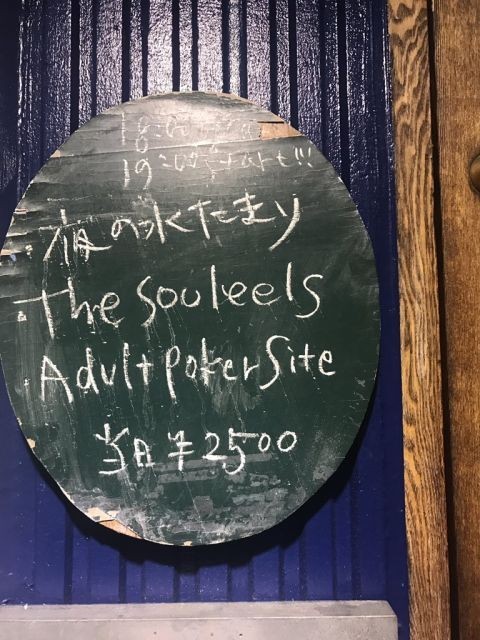 18:00
19:00スタート!!!
夜の水たまり
The souleels
Adult poker Site
当日 ¥2500